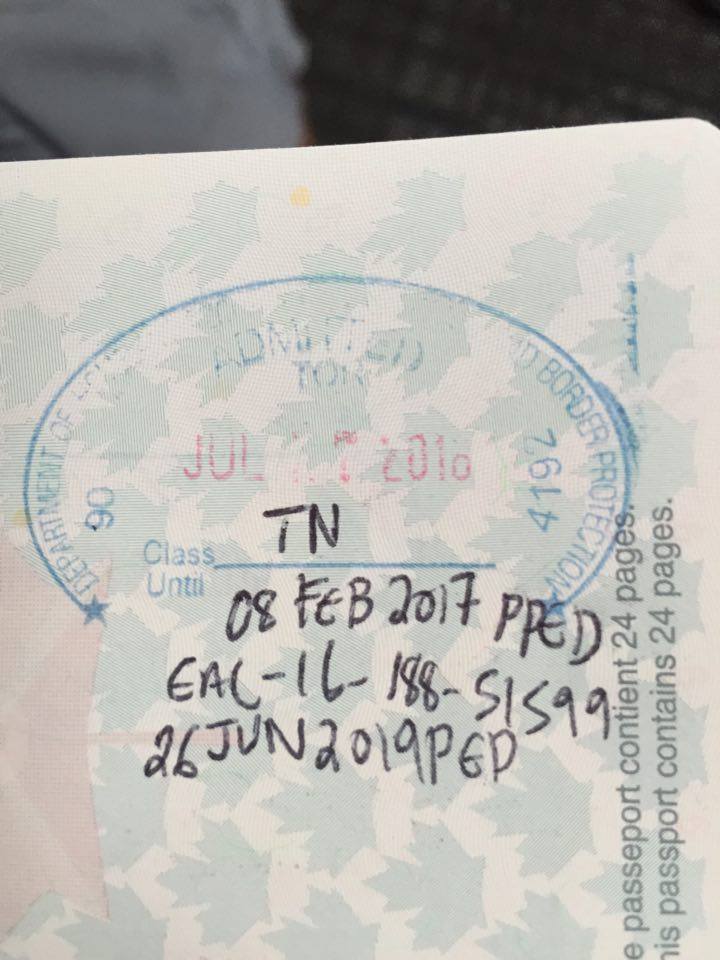 DEPARTMENT OF
ADMITTED
TOR
D BORDER PROTECTION
JUL 2016
90
4192
Class TN
Until 08 FEB 2017 PPED
EAC-16-188-51599
26 JUN 2019 PED
e passeport contient 24 pages.
his passport contains 24 pages.